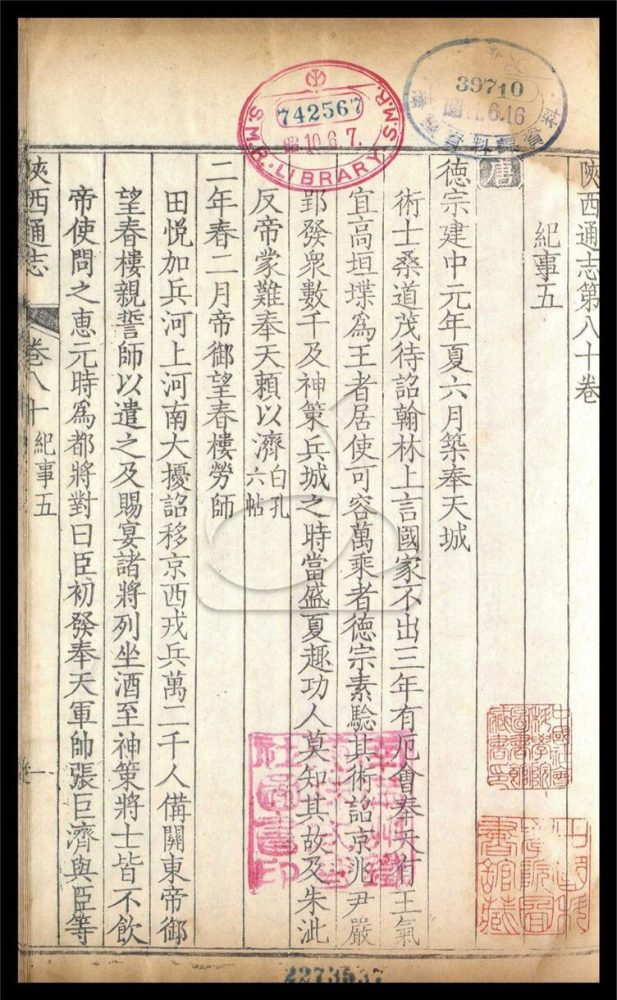 陝西通志第八十卷
紀事五
唐
德宗建中元年夏六月築奉天城
術士桑道茂待詔翰林上言國家不出三年有厄會奉天有王氣
宜高垣堞爲王者居使可容萬乘者德宗素驗其術詔京兆尹嚴
郢發衆數千及神策兵城之時當盛夏趣功人莫知其故及朱泚
反帝蒙難奉天賴以濟白孔六帖
二年春二月帝御望春樓勞師
田悅加兵河上河南大擾詔移京西戎兵萬二千人備關東帝御
望春樓親誓師以遣之及賜宴諸將列坐酒至神策將士皆不飲
帝使問之惠元時爲都將對曰臣初發奉天軍帥張巨濟與臣等
陝西通志
卷八十
紀事五
一
742567
S.M.R. LIBRARY. S.M.R.
10.6.7.
39710
6.16
2273537